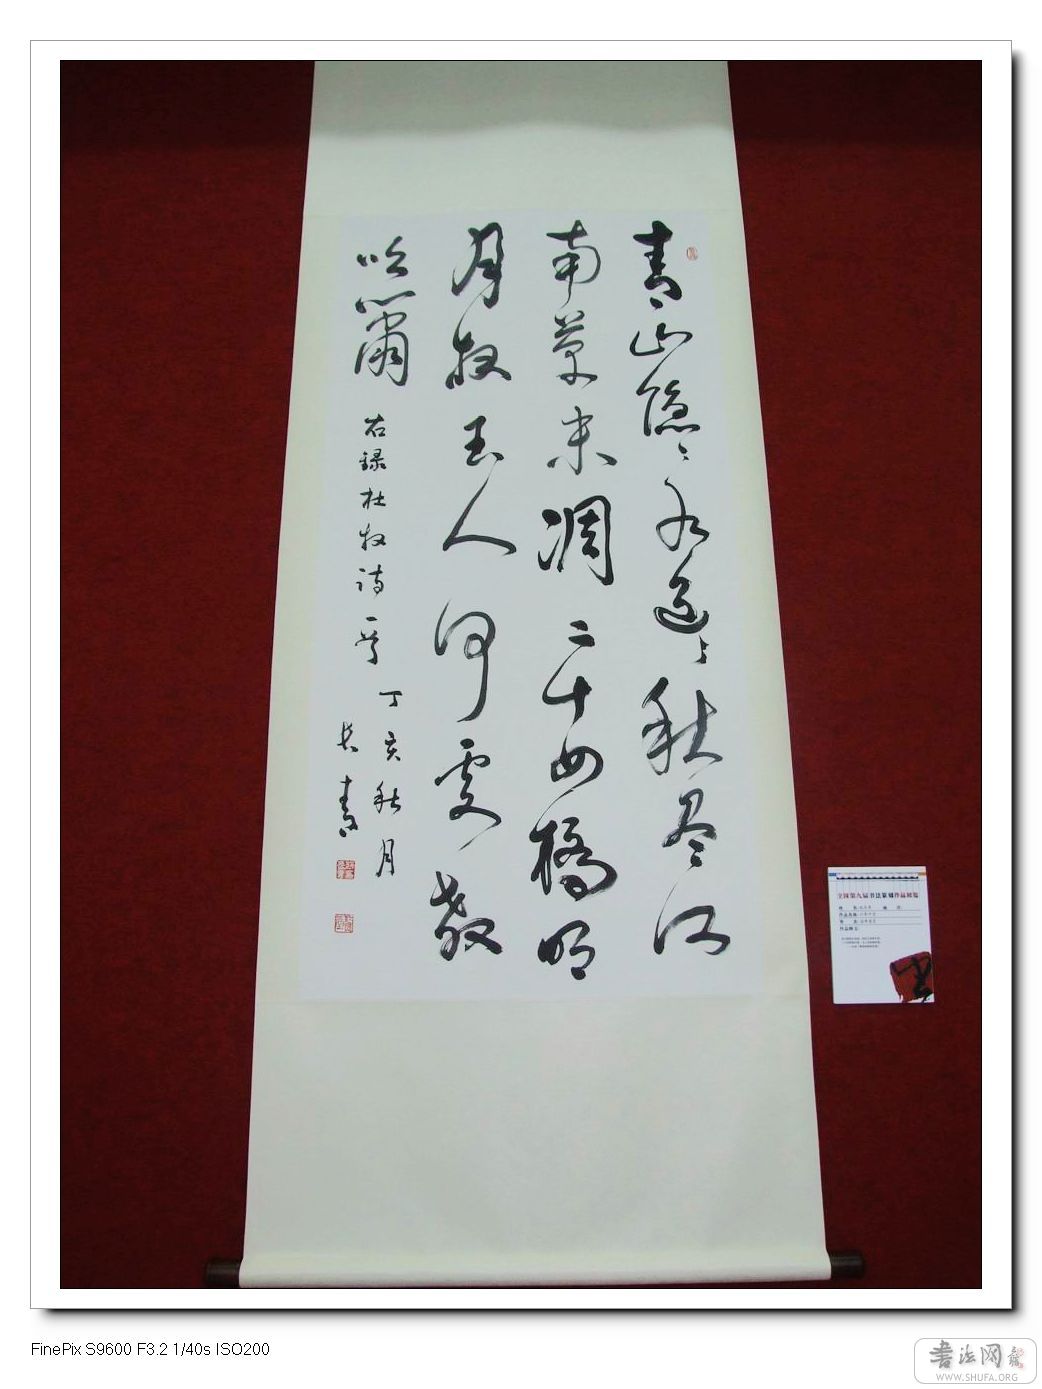 青山隐〻水迢〻秋尽江
南草未凋二十四桥明
月夜玉人何处教
吹箫
右録杜牧诗一首
丁亥秋月
长青
全国第九届书法篆刻作品展览
FinePix S9600 F3.2 1/40s ISO200
书法网
WWW.SHUFA.ORG